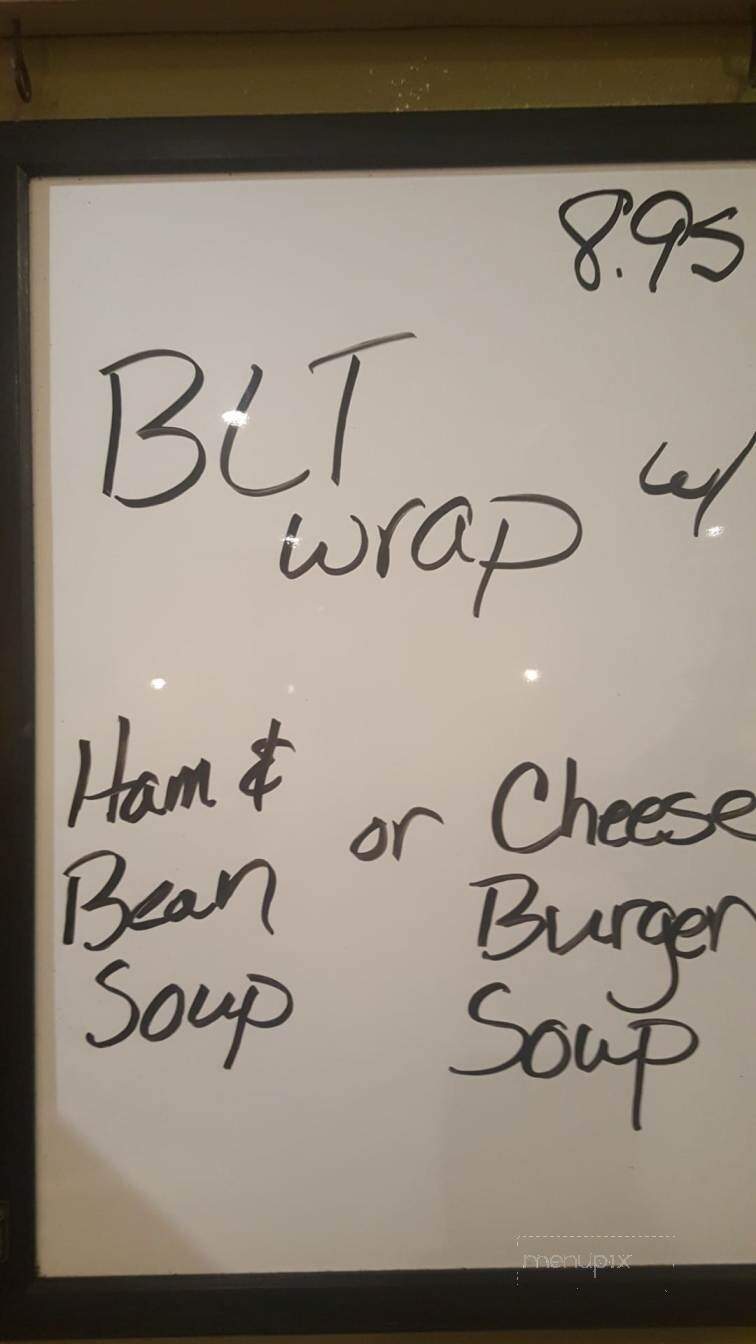 8.95
BLT w/
wrap
Ham & or Cheese
Bean Burger
Soup Soup
menupix